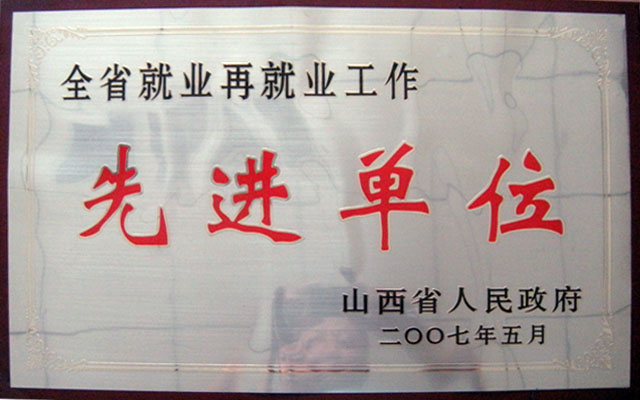 全省就业再就业工作
先进单位
山西省人民政府
二〇〇七年五月